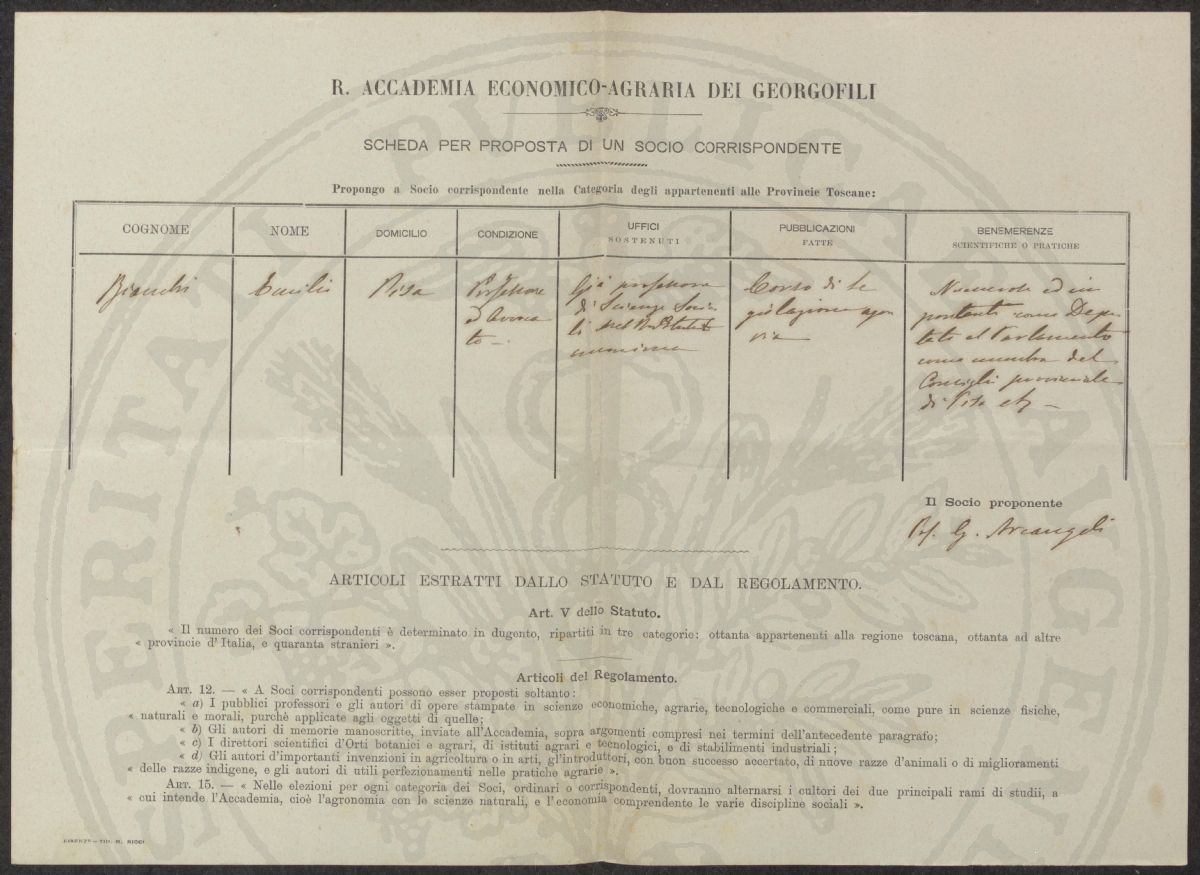 R. ACCADEMIA ECONOMICO-AGRARIA DEI GEORGOFILI
SCHEDA PER PROPOSTA DI UN SOCIO CORRISPONDENTE
Propongo a Socio corrispondente nella Categoria degli appartenenti alle Provincie Toscane:
COGNOME
NOME
DOMICILIO
CONDIZIONE
UFFICI
SOSTENUTI
PUBBLICAZIONI
FATTE
BENEMERENZE
SCIENTIFICHE O PRATICHE
Bianchi
Emilio
Pisa
Professore
ed Avvoca
to
Già professore
di Scienze Socia
li
Corso di le
gislazione agra
ria
Numerose ed im
portanti come Depu
tato al Parlamento
come membro del
Consiglio provinciale
di Pisa etc
Il Socio proponente
Prof. G. Arcangeli
ARTICOLI ESTRATTI DALLO STATUTO E DAL REGOLAMENTO.
Art. V dello Statuto.
« Il numero dei Soci corrispondenti è determinato in dugento, ripartiti in tre categorie: ottanta appartenenti alla regione toscana, ottanta ad altre
« provincie d'Italia, e quaranta stranieri ».
Articoli del Regolamento.
ART. 12. — « A Soci corrispondenti possono esser proposti soltanto:
« a) I pubblici professori e gli autori di opere stampate in scienze economiche, agrarie, tecnologiche e commerciali, come pure in scienze fisiche,
« naturali e morali, purchè applicate agli oggetti di quelle;
« b) Gli autori di memorie manoscritte, inviate all'Accademia, sopra argomenti compresi nei termini dell'antecedente paragrafo;
« c) I direttori scientifici d'Orti botanici e agrari, di istituti agrari e tecnologici, e di stabilimenti industriali;
« d) Gli autori d'importanti invenzioni in agricoltura o in arti, gl'introduttori, con buon successo accertato, di nuove razze d'animali o di miglioramenti
« delle razze indigene, e gli autori di utili perfezionamenti nelle pratiche agrarie ».
ART. 15. — « Nelle elezioni per ogni categoria dei Soci, ordinari o corrispondenti, dovranno alternarsi i cultori dei due principali rami di studii, a
« cui intende l'Accademia, cioè l'agronomia con le scienze naturali, e l'economia comprendente le varie discipline sociali ».
FIRENZE — TIP. M. RICCI
PROSPERITATI PUBLICAE AUGENDAE